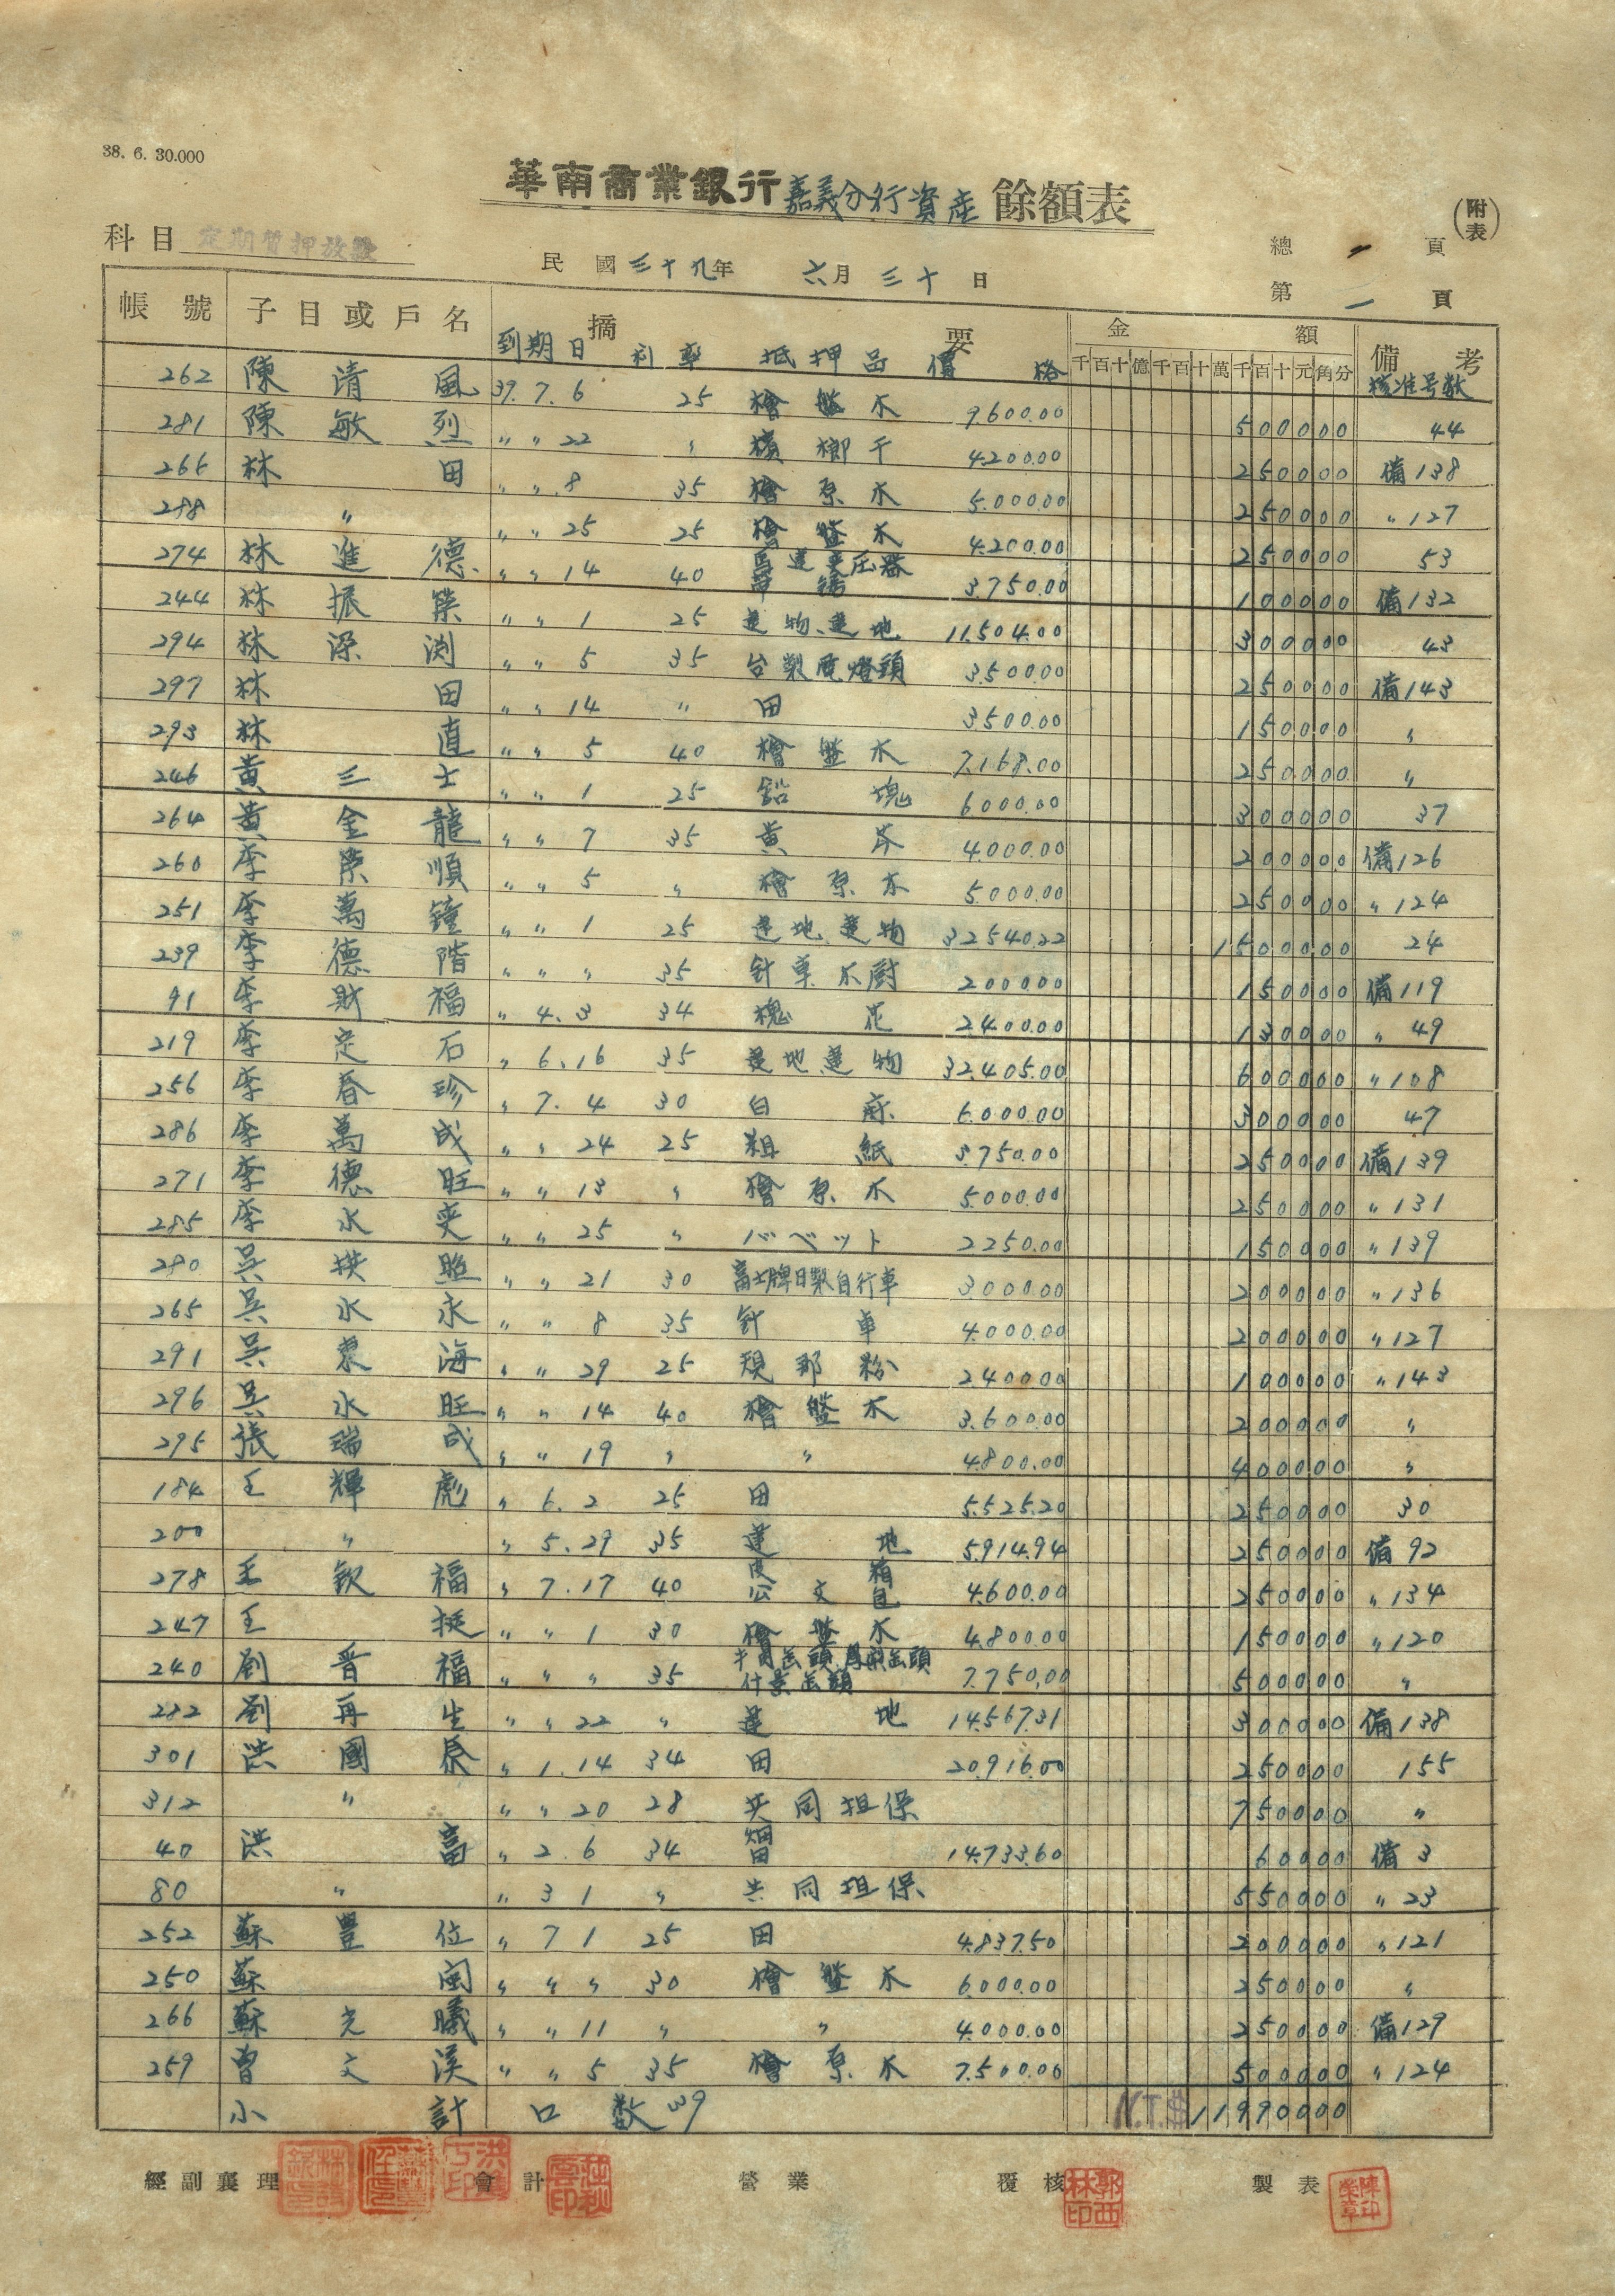 38. 6. 30.000
華南商業銀行嘉義分行資產餘額表
(附表)
科目 定期質押放款
民國三十九年 六月三十日
總 一 頁
第 一 頁
帳號 子目或戶名 摘要 金額 備考
到期日 利率 抵押品 價格 千百十億千百十萬千百十元角分 核准号数
262 陳清風 39.7.6 25 檜盤木 9600.00 500000 44
281 陳敏烈 〃 〃 22 〃 檳榔干 4200.00 250000 備138
266 林田 〃 〃 8 35 檜原木 5.000.00 250000 〃127
288 〃 〃 〃 25 25 檜盤木 4.200.00 250000 53
274 林進德 〃 〃 14 40 馬達变圧器 3.750.00 100000 備132
244 林振榮 〃 〃 1 25 建物、建地 11.504.00 300000 43
294 林深渕 〃 〃 5 35 台製電燈頭 3.500.00 250000 備143
297 林田 〃 〃 14 〃 田 3500.00 150000 〃
293 林直 〃 〃 5 40 檜盤木 7.168.00 250000 〃
246 黃三士 〃 〃 1 25 鉛塊 6000.00 300000 37
264 黃金龍 〃 〃 7 35 黃麻 4.000.00 200000 備126
260 李榮順 〃 〃 5 〃 檜原木 5.000.00 250000 〃124
251 李萬鐘 〃 〃 1 25 建地建物 32540.22 1500000 24
239 李德階 〃 〃 〃 35 針車木廚 2000.00 150000 備119
91 李財福 〃 4.3 34 槐花 2400.00 130000 〃49
219 李定石 〃 6.16 35 建地建物 32.405.00 600000 〃108
256 李春珍 〃 7.4 30 白麻 6.000.00 300000 47
286 李萬成 〃 〃 24 25 粗紙 3.750.00 250000 備139
271 李德旺 〃 〃 13 〃 檜原木 5.000.00 250000 〃131
285 李水奕 〃 〃 25 〃 バベット 2250.00 150000 〃139
280 吳拱照 〃 〃 21 30 富士牌日製自行車 3000.00 200000 〃136
265 吳水永 〃 〃 8 35 針車 4.000.00 200000 〃127
291 吳東海 〃 〃 29 25 規那粉 2400.00 100000 〃143
296 吳水旺 〃 〃 14 40 檜盤木 3.600.00 200000 〃
295 張瑞成 〃 〃 19 〃 〃 4.800.00 400000 〃
184 王輝彪 〃 6.2 25 田 5.525.20 250000 30
200 〃 〃 5.29 35 建地 5.914.94 250000 備92
278 王欽福 〃 7.17 40 皮箱公文包 4.600.00 250000 〃134
247 王挺 〃 〃 1 30 檜盤木 4.800.00 150000 〃120
240 劉晋福 〃 〃 〃 35 什景缶頭 7.750.00 500000 〃
282 劉再生 〃 〃 22 〃 建地 14.567.31 300000 備138
301 洪國泰 〃 1.14 34 田 20.916.00 250000 155
312 〃 〃 〃 20 28 共同担保 750000 〃
40 洪富 〃 2.6 34 畑田 14.733.60 60000 備3
80 〃 〃 3 1 〃 共同担保 550000 〃23
252 蘇豐位 〃 7 1 25 田 4.837.50 200000 〃121
250 蘇闽 〃 〃 〃 30 檜盤木 6.000.00 250000 〃
266 蘇光曦 〃 〃 11 〃 〃 4.000.00 250000 備129
259 曹文漢 〃 〃 5 35 檜原木 7.500.00 500000 〃124
小計 口数39 N.T.$11990000
經副襄理 會計 營業 覆核 製表